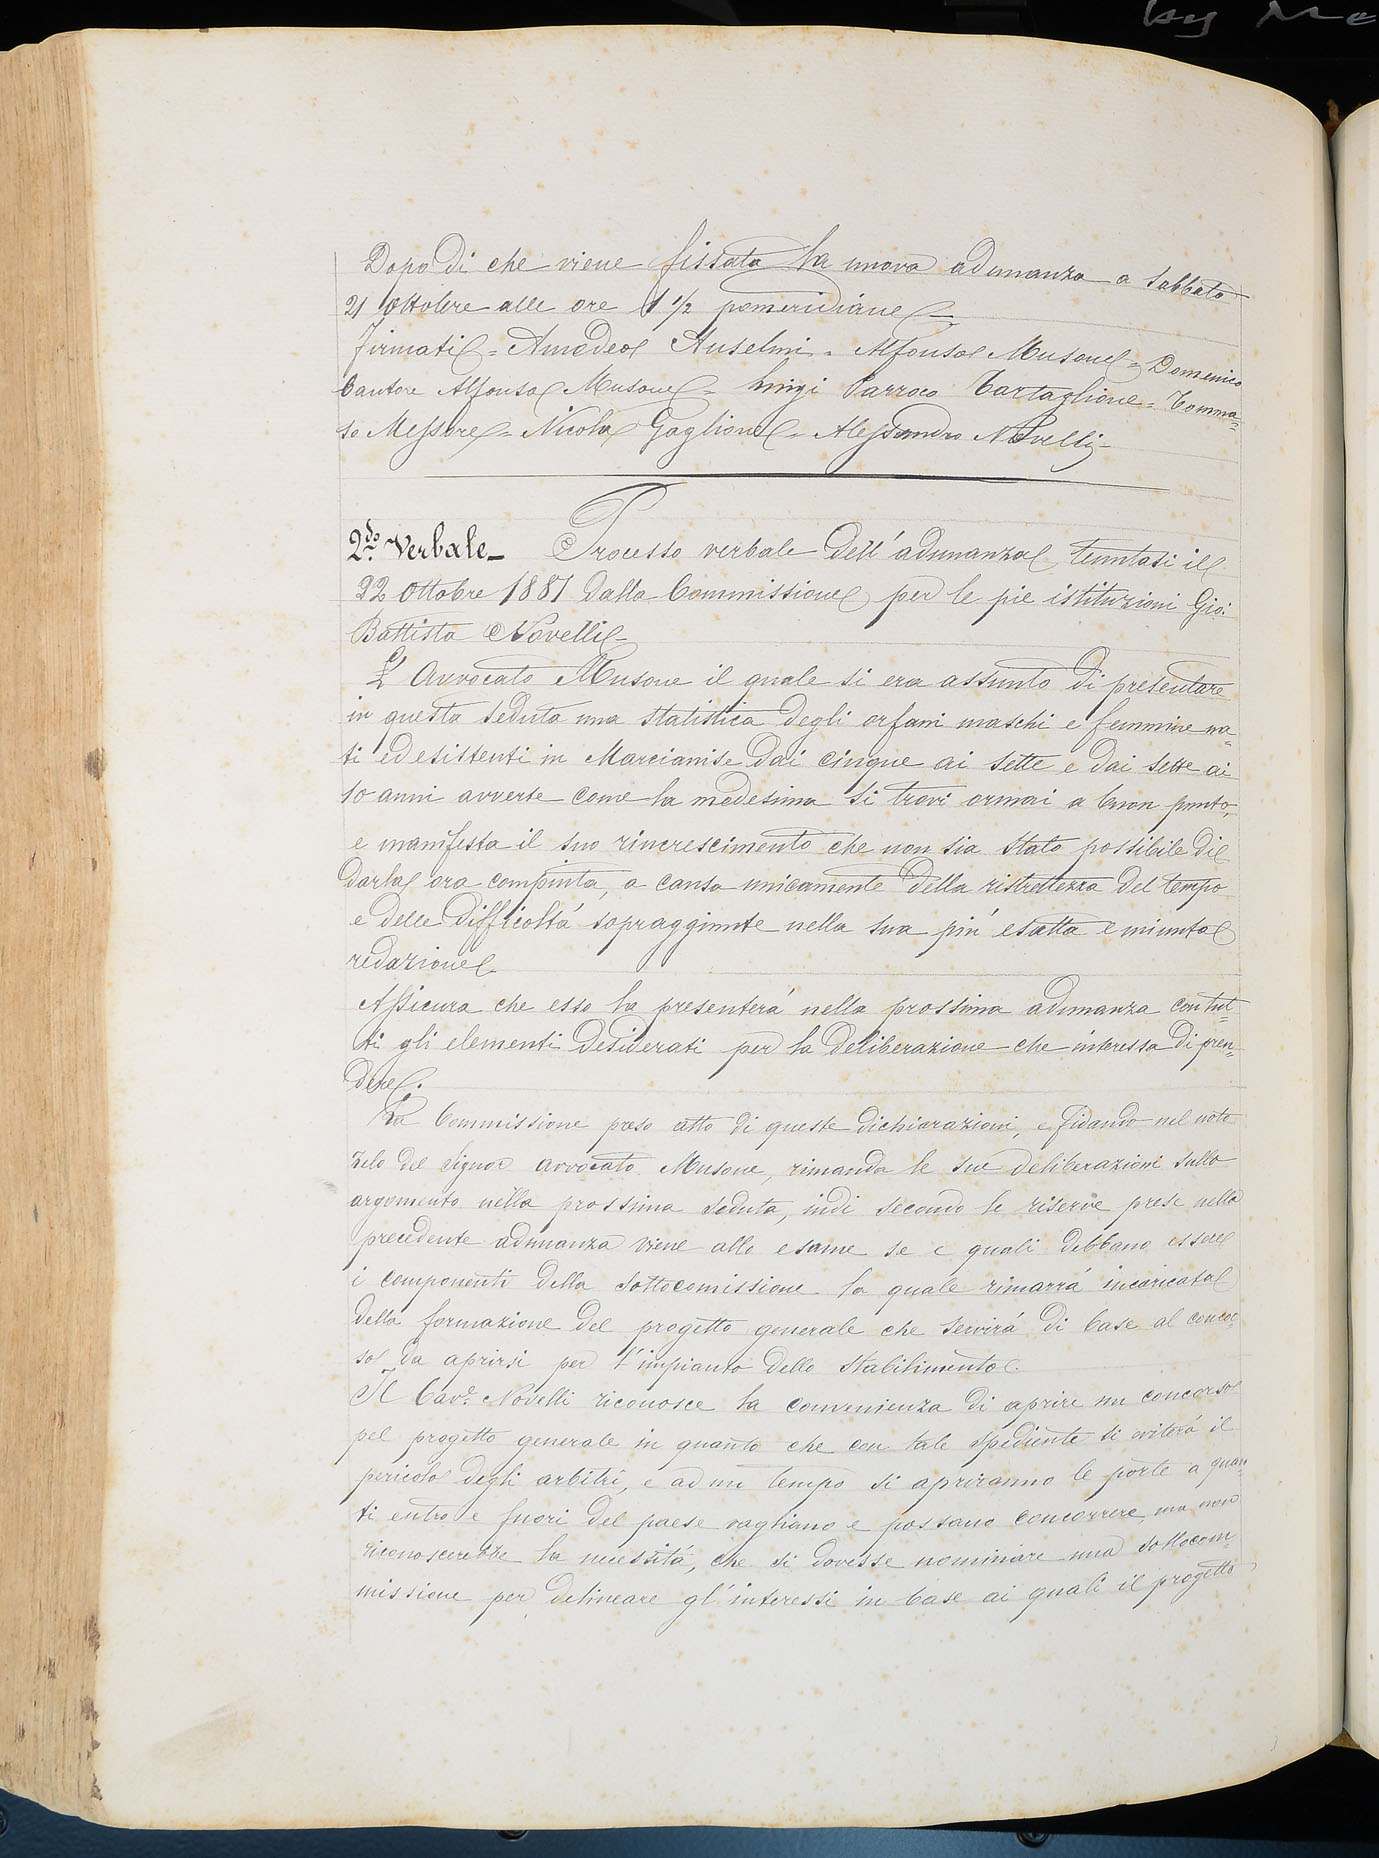 by Me
Dopo di che viene fissata la nuova adunanza a Sabbato
21 Ottobre alle ore 1 1/2 pomeridiane
firmati = Amedeo Anselmi = Alfonso Musone = Domenico
Cantore Alfonso Musone = Luigi Parroco Tartaglione = Tomma=
so Messore = Nicola Gaglione = Alessandro Novelli =
2do Verbale – Processo verbale dell'adunanza tenutasi il
22 Ottobre 1881 dalla Commissione per le pie istituzioni Gio:
Battista Novelli –
L'Avvocato Musone il quale si era assunto di presentare
in questa seduta una statistica degli orfani maschi e femmine na=
ti ed esistenti in Marcianise dai cinque ai sette e dai sette ai
10 anni avverte come la medesima si trovi ormai a buon punto,
e manifesta il suo rincrescimento che non sia stato possibile di
darla ora compiuta, a causa unicamente della ristrettezza del tempo
e delle difficoltá sopraggiunte nella sua piú esatta e minuta
redazione.
Assicura che esso la presenterá nella prossima adunanza con tut=
ti gli elementi desiderati per la deliberazione che interessa di pren=
dere.
La Commissione preso atto di queste dichiarazioni, e fidando nel noto
zelo del Signor avvocato Musone, rimanda le sue deliberazioni sullo
argomento nella prossima seduta, indi secondo le riserve prese nella
precedente adunanza viene allo esame se e quali debbano essere
i componenti della sottocomissione la quale rimarrá incaricata
della formazione del progetto generale che servirá di base al concor=
so da aprirsi per l'impianto dello stabilimento.
Il Cav. Novelli riconosce la convenienza di aprire un concorso
pel progetto generale in quanto che con tale spediente si eviterá il
pericolo degli arbitri, e ad un tempo si apriranno le porte a quan=
ti entro e fuori del paese vogliano e possano concorrere, ma non
riconoscerebbe la necessitá, che si dovesse nominare una sottocom=
missione per delineare gl'interessi in base ai quali il progetto